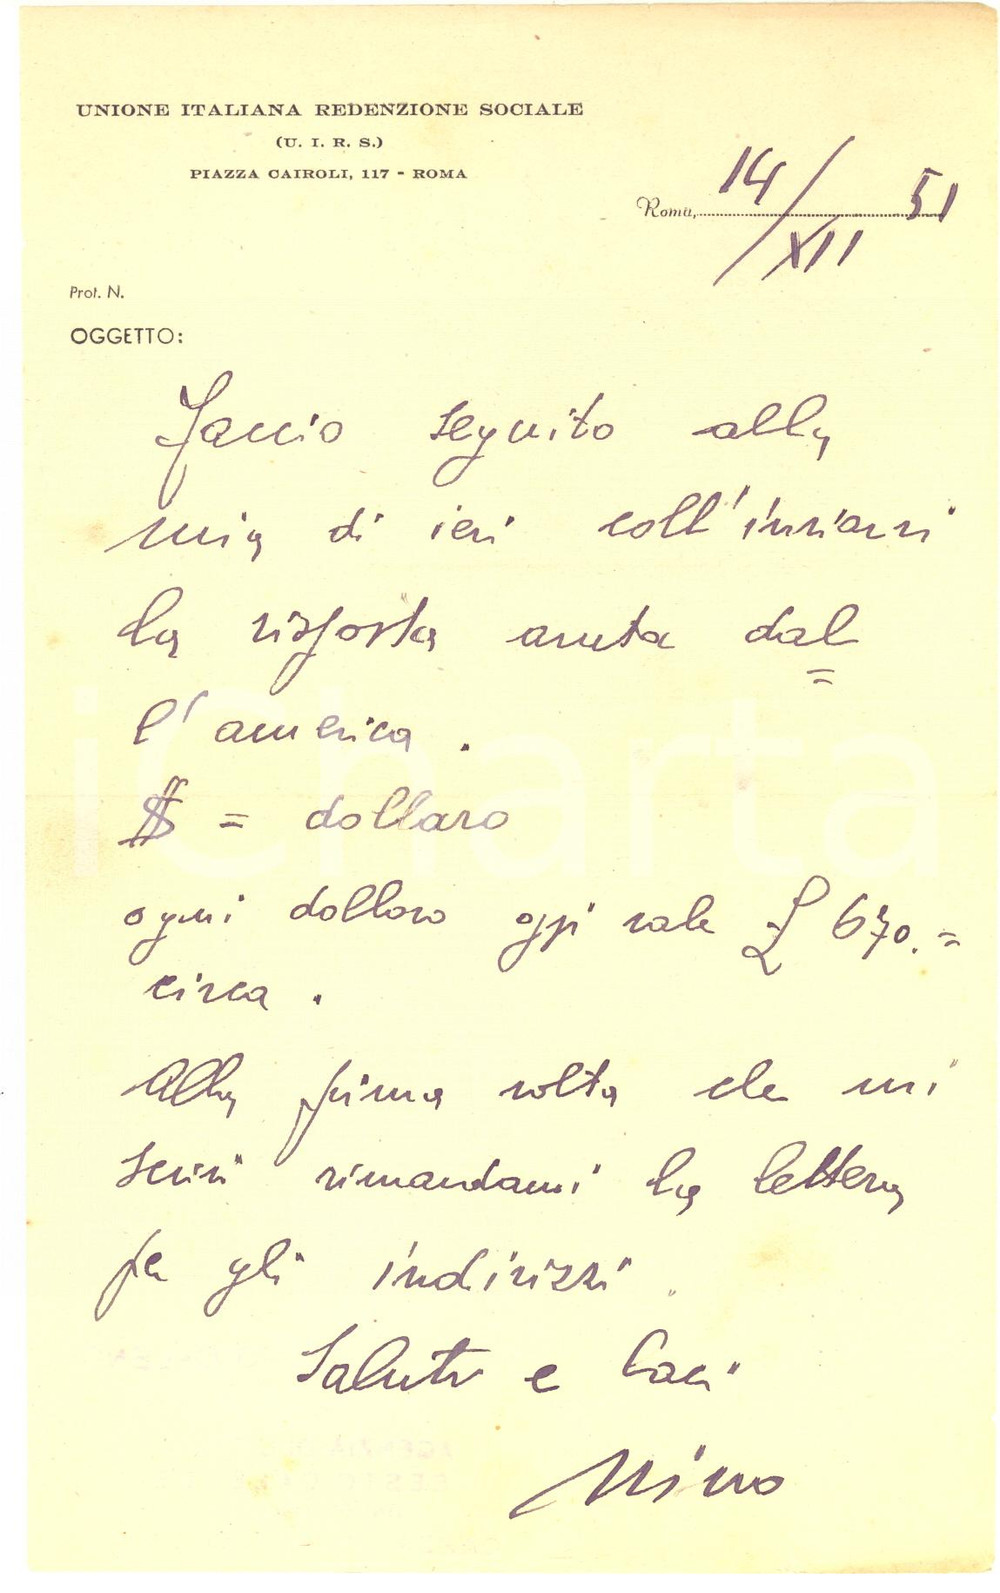 UNIONE ITALIANA REDENZIONE SOCIALE
(U. I. R. S.)
PIAZZA CAIROLI, 117 - ROMA
Roma, 14/XII 51
Prot. N.
OGGETTO:
Faccio seguito alla
mia di ieri coll'inviarvi
la risposta avuta dal=
l'america.
$ = dollaro
ogni dollaro oggi vale £ 670.=
circa.
Alla prima volta che mi
scrivi rimandami la lettera
per gli indirizzi
Saluti e baci
Nino
iCharta